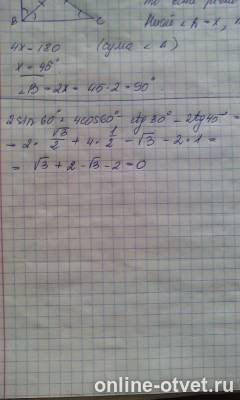 B
C
4x = 180 (сума
x = 45°
∠B = 2x = 45·2 = 90°
2sin 60° + 4cos60° - ctg 30° - 2tg 45° =
= 2·√3/2 + 4·1/2 - √3 - 2·1 =
= √3 + 2 - √3 - 2 = 0
online-otvet.ru